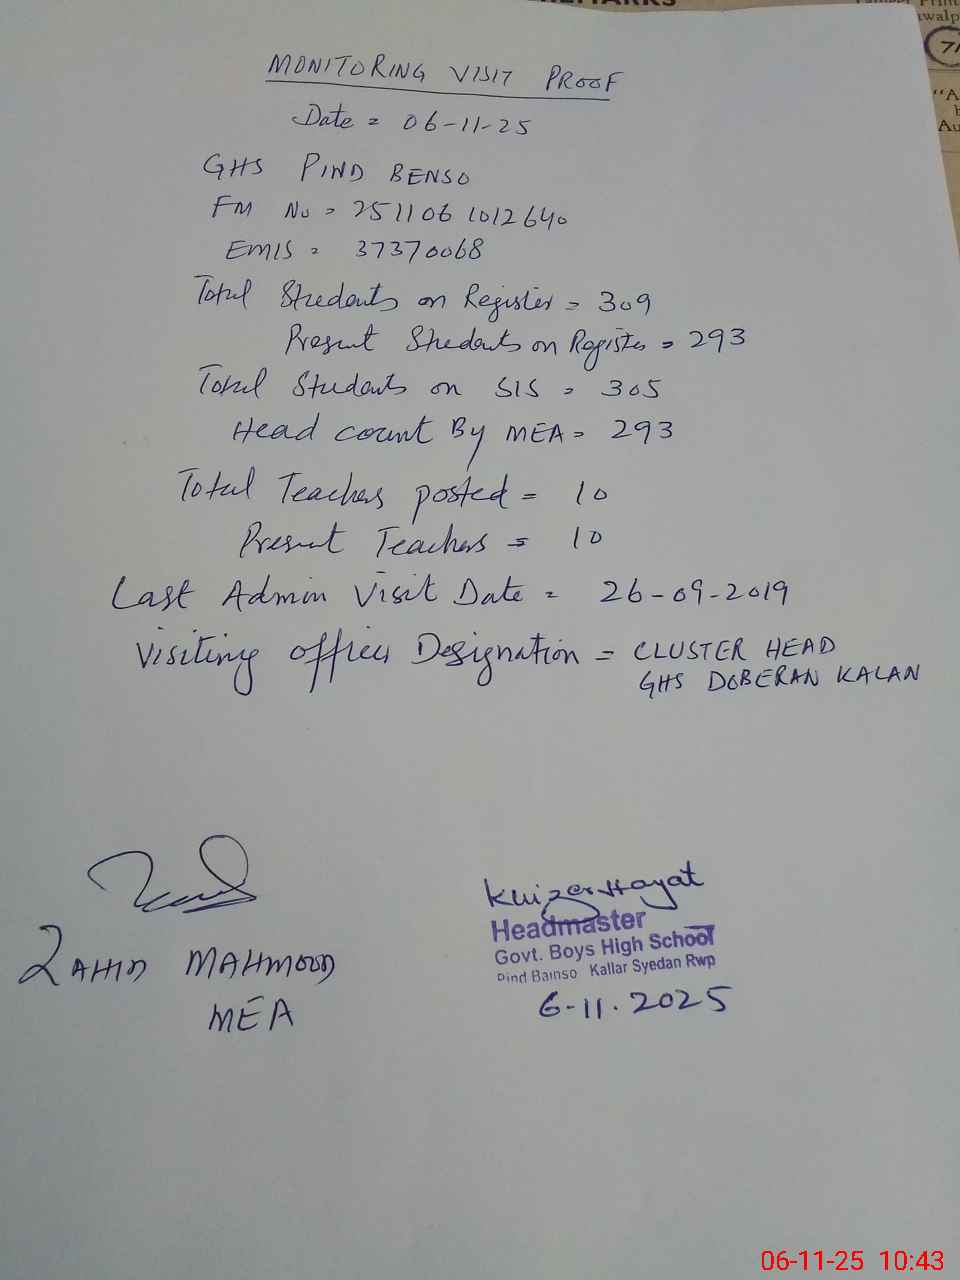 MONITORING VISIT PROOF
Date = 06-11-25
GHS PIND BENSO
FM No = 2511061012640
EMIS = 37370068
Total Students on Register = 309
Present Students on Register = 293
Total Students on SIS = 305
Head count By MEA = 293
Total Teachers posted = 10
Present Teachers = 10
Last Admin Visit Date = 26-09-2019
Visiting officer Designation = CLUSTER HEAD
GHS DOBERAN KALAN
Khizer Hayat
Headmaster
Govt. Boys High School
Pind Bainso Kallar Syedan Rwp
6-11.2025
ZAHID MAHMOOD
MEA
06-11-25 10:43